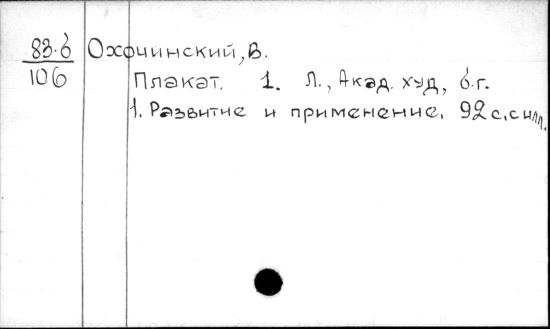 83.б Охочинский, В.
106
Плакат. 1. Л., Акад. худ, б.г.
1. Развитие и применение. 92 с. с илл.